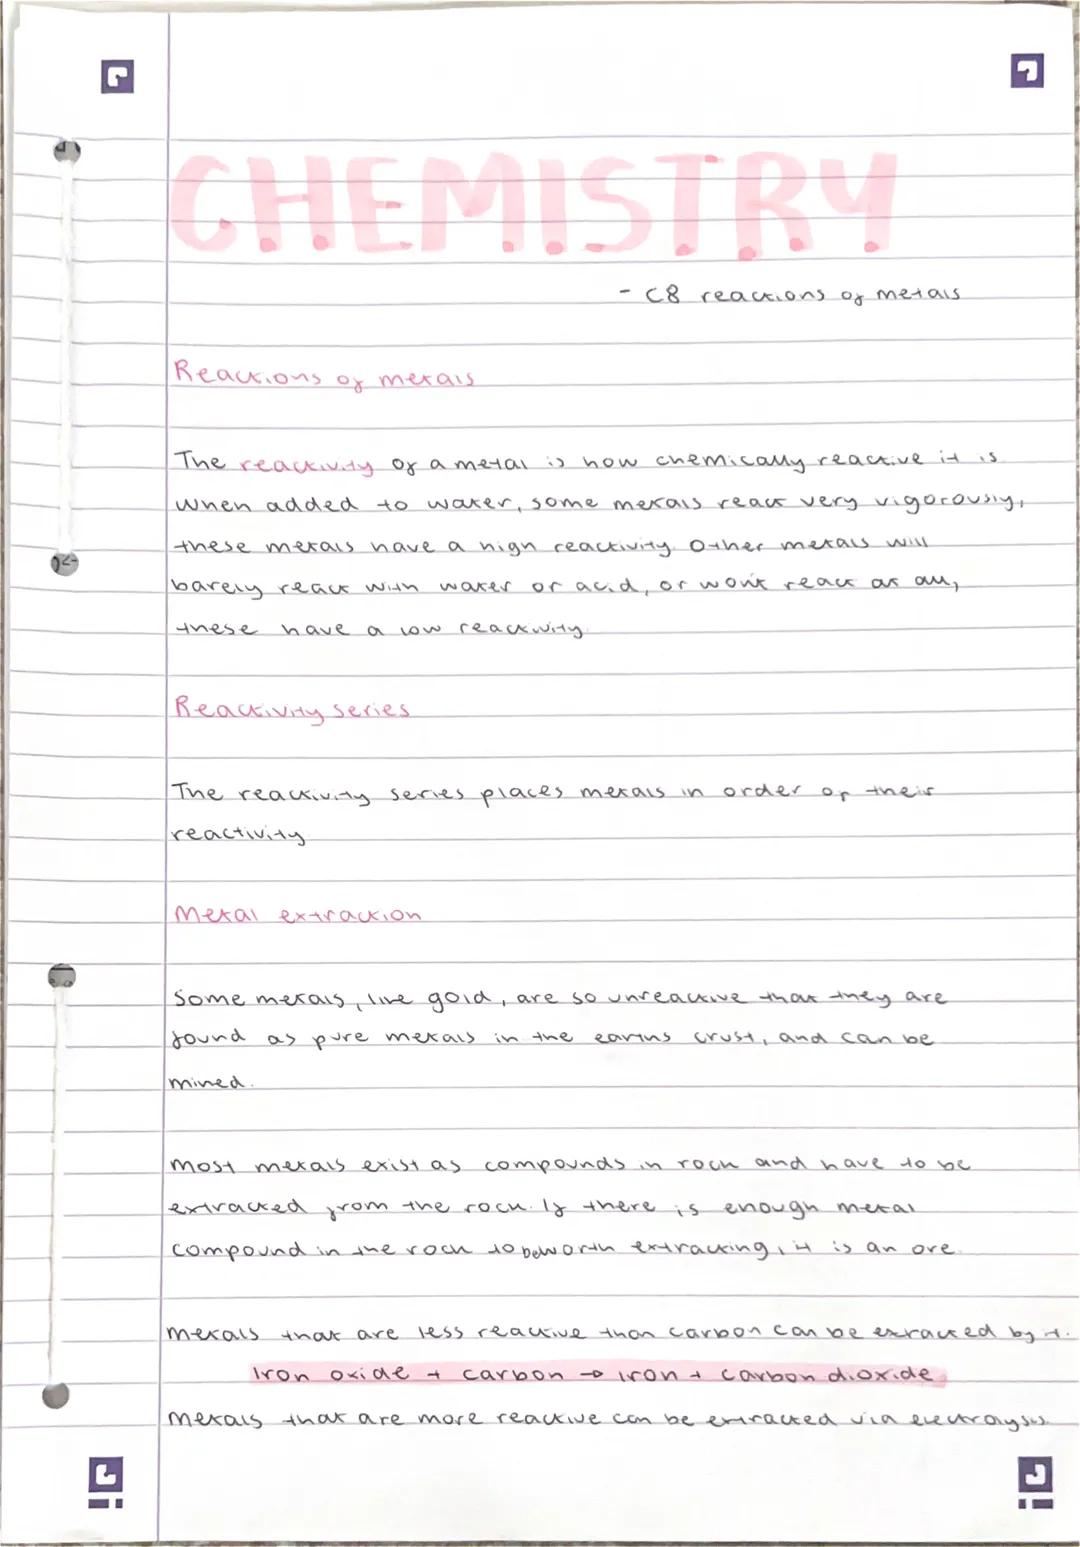 CHEMISTRY
- C8 reactions of metals
Reactions of metals
The reactivity of a metal is how chemically reactive it is.
When added to water, some metals react very vigorously,
these metals have a high reactivity. Other metals will
barely react with water or acid, or won't react at all,
these have a low reactivity.
Reactivity series
The reactivity series places metals in order of their
reactivity
Metal extraction
Some metals, like gold, are so unreactive that they are
found as pure metals in the earths crust, and can be
mined.
Most metals exist as compounds in rock and have to be
extracted from the rock. If there is enough metal
compound in the rock to be worth extracting, it is an ore.
Metals that are less reactive than carbon can be exracted by it.
Iron oxide + carbon → iron + carbon dioxide
Metals that are more reactive can be extracted via electrolysis.